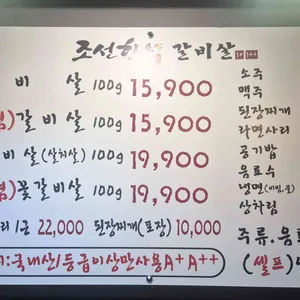 조선한 갈비살
비 살 100g 15,900
)갈비살 100g 15,900
비살(살치살) 100g 19,900
)꽃갈비살 100g 19,900
리 1근 22,000 된장찌개(포장) 10,000
지:국내산1등급이상만사용A+A++
소주
맥주
된장찌개
라면사리
공기밥
음료수
냉면(비빔,물)
상차림
주류.음료
(셀프)